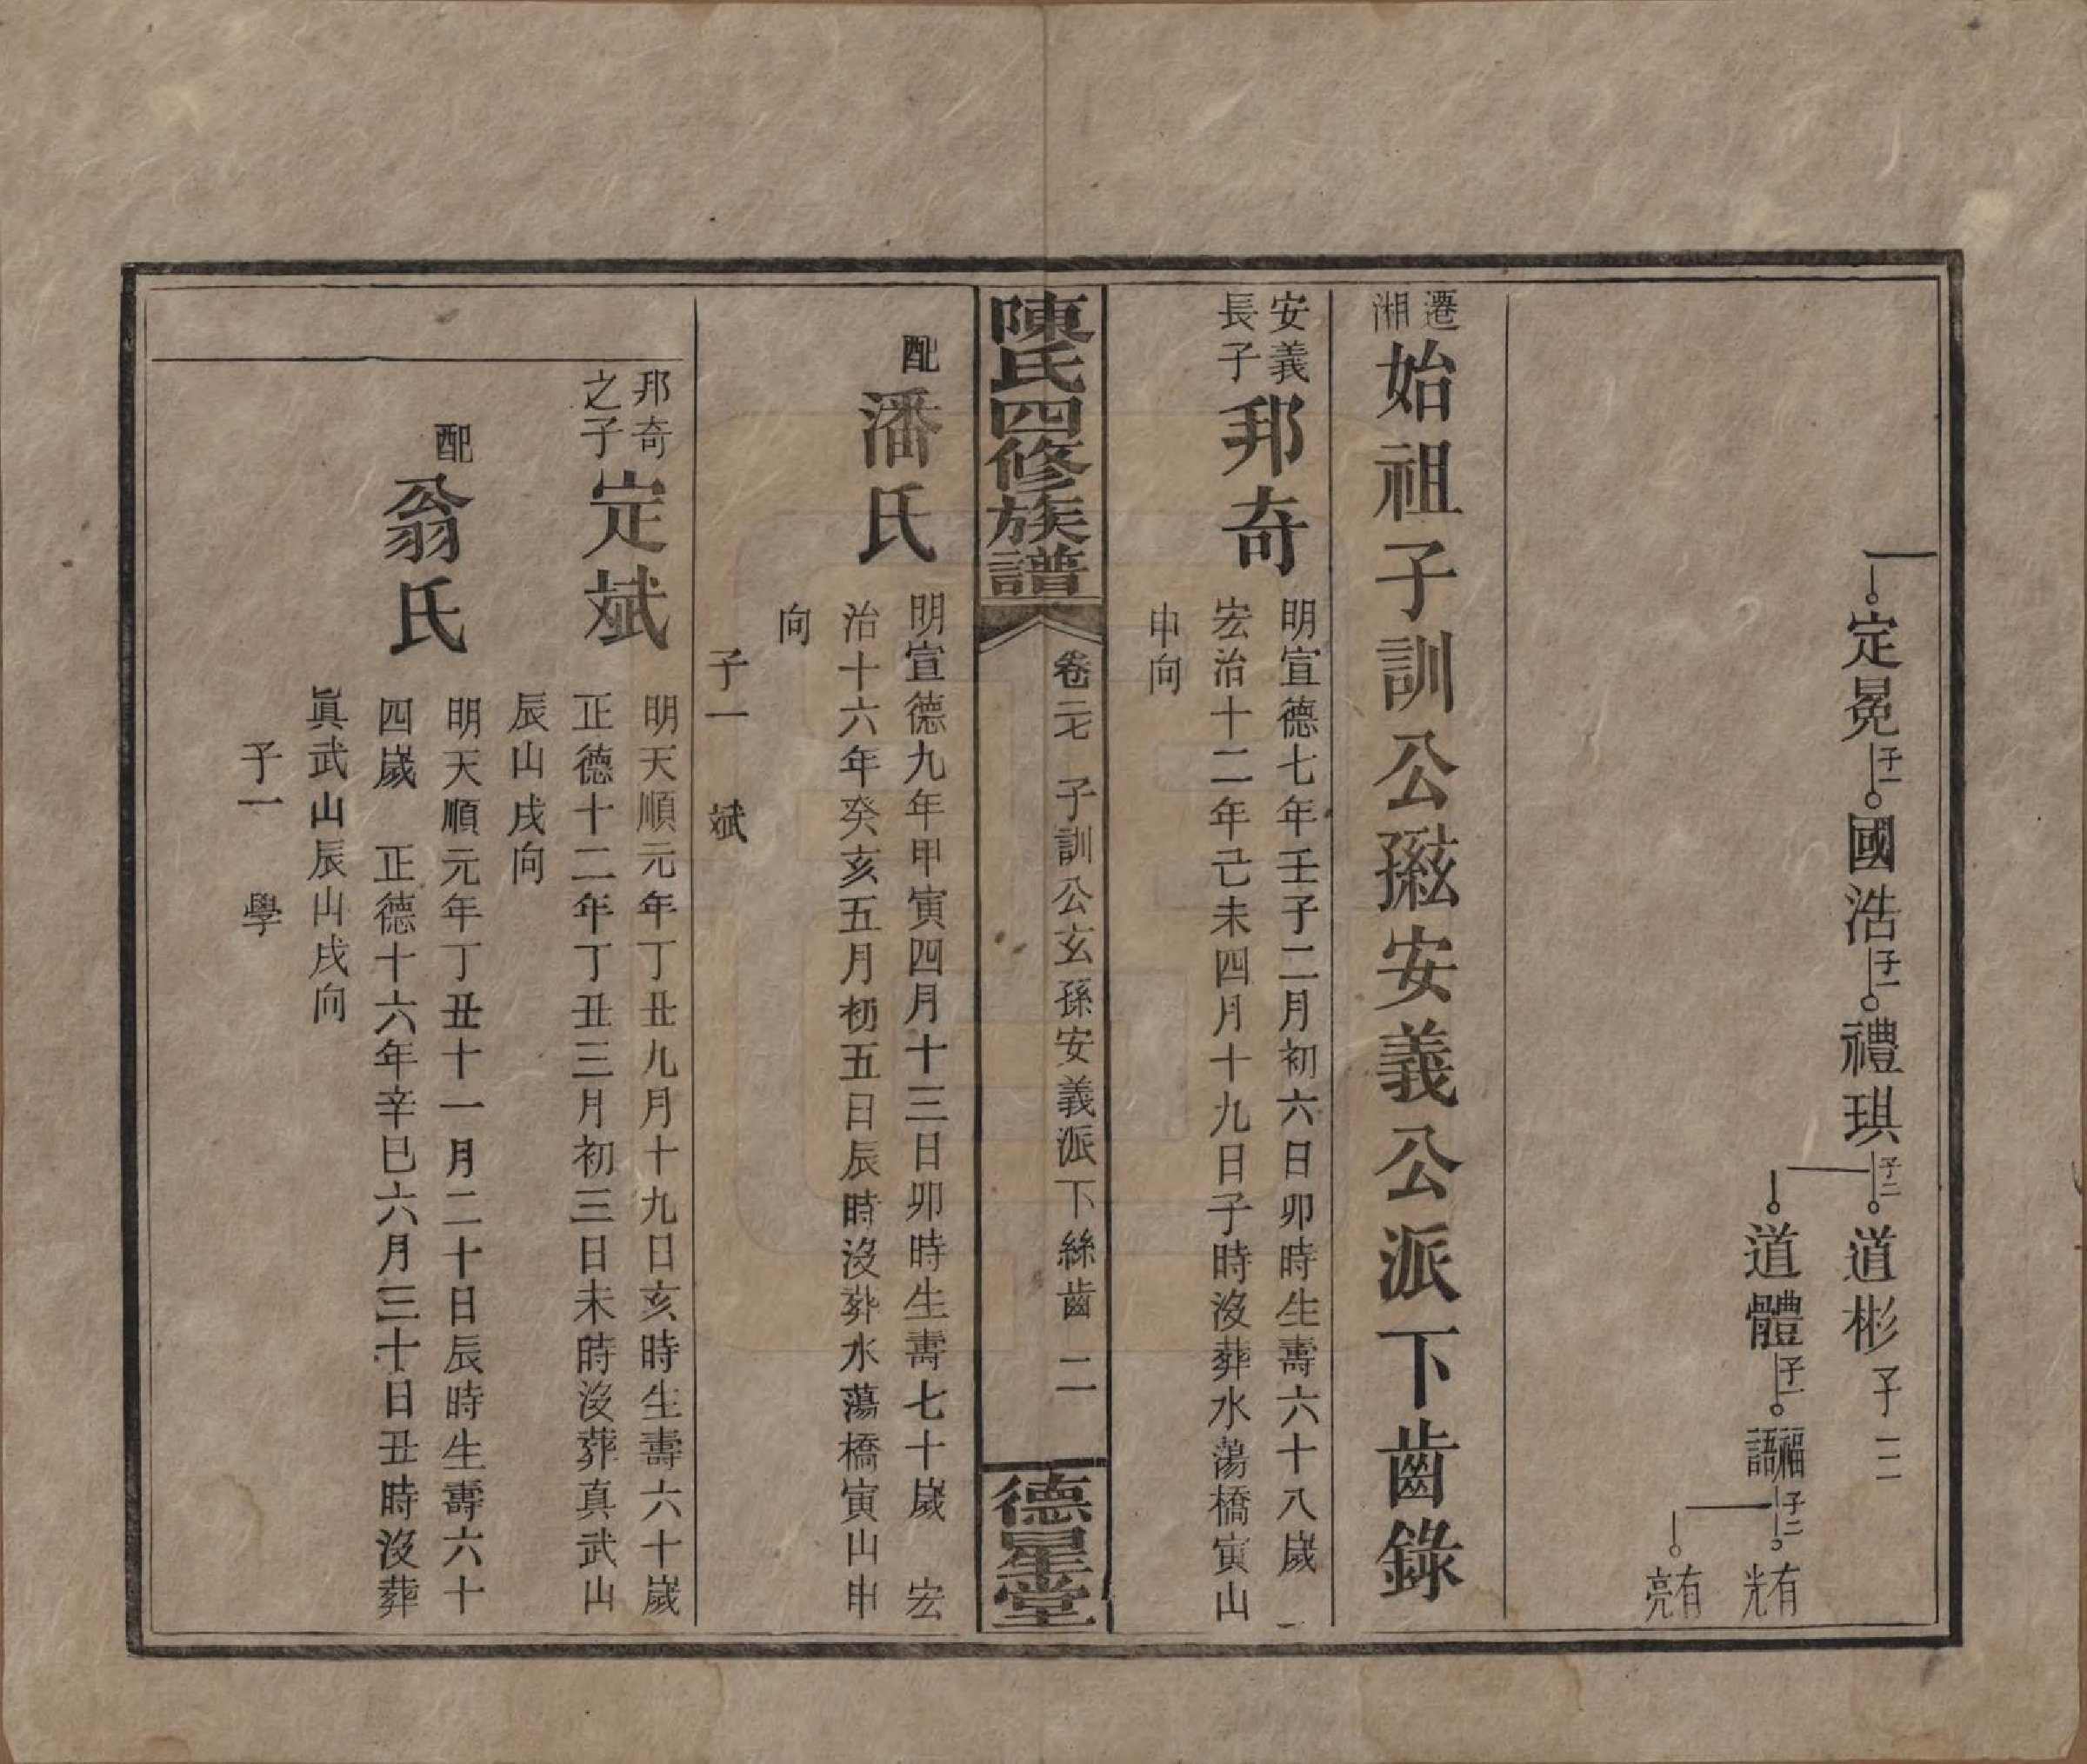 定冕 子一 國浩 子一 禮琪 子二 道彬 子二
道體 子一 福語 子二 有光
有亮
遷湘始祖子訓公㽒安義公派下齒錄
安義長子 邦奇 明宣德七年壬子二月初六日卯時生壽六十八歲
宏治十二年己未四月十九日子時沒葬水蕩橋寅山
申向
陳氏四修族譜 卷二七 子訓公玄孫安義派下絲齒 二 德星堂
配 潘氏 明宣德九年甲寅四月十三日卯時生壽七十歲 宏
治十六年癸亥五月初五日辰時沒葬水蕩橋寅山申
向
子一 斌
邦奇之子 定斌 明天順元年丁丑九月十九日亥時生壽六十歲
正德十二年丁丑三月初三日未時沒葬真武山
辰山戌向
配 翁氏 明天順元年丁丑十一月二十日辰時生壽六十
四歲 正德十六年辛巳六月三十日丑時沒葬
眞武山辰山戌向
子一 學